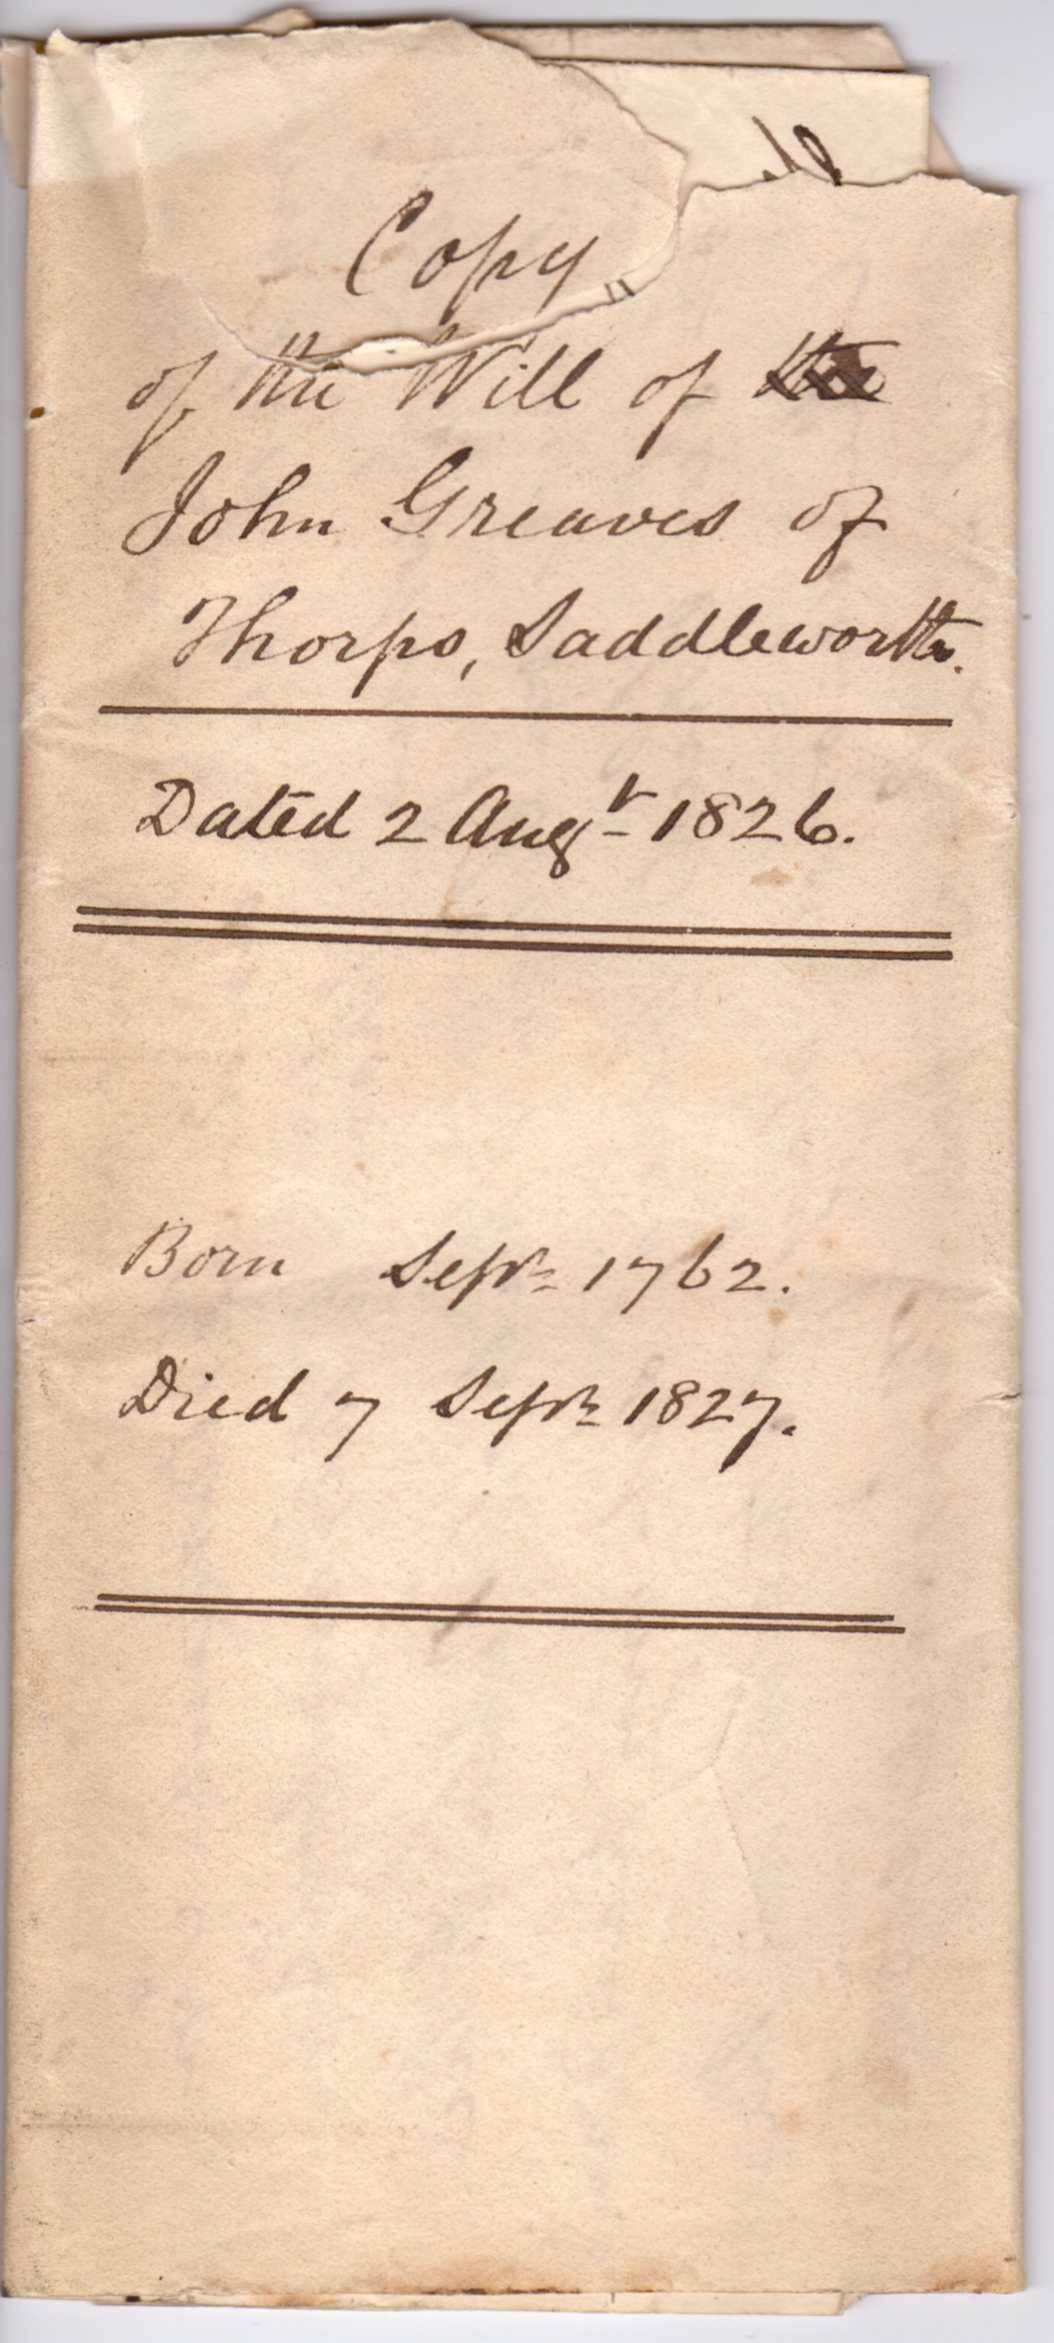 Copy
of the Will of the
John Greaves of
Thorps, Saddleworth.
Dated 2 Augt 1826.
Born Septr 1762.
Died 7 Septr 1827.